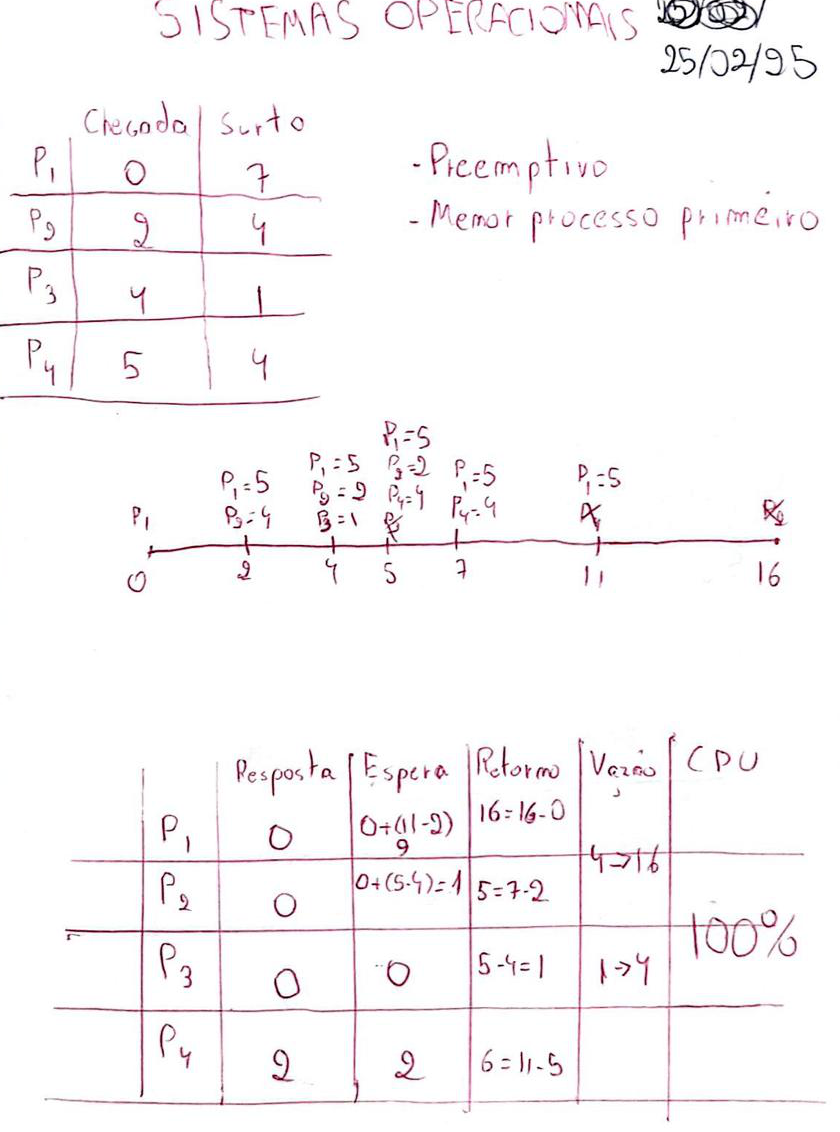 SISTEMAS OPERACIONAIS
25/02/95
Chegada Surto
P1 0 7
P2 2 4
P3 4 1
P4 5 4
- Preemptivo
- Menor processo primeiro
P1=5
P1=5 P1=5 P2=2 P1=5 P1=5
P1 P2=4 P2=2 P3=1 P4=4 P4=4
0 2 4 5 7 11 16
Resposta Espera Retorno Vazão CPU
P1 0 0+(11-2) 9 16=16-0
4→16
P2 0 0+(5-4)=1 5=7-2
100%
P3 0 0 5-4=1 1→4
P4 2 2 6=11-5